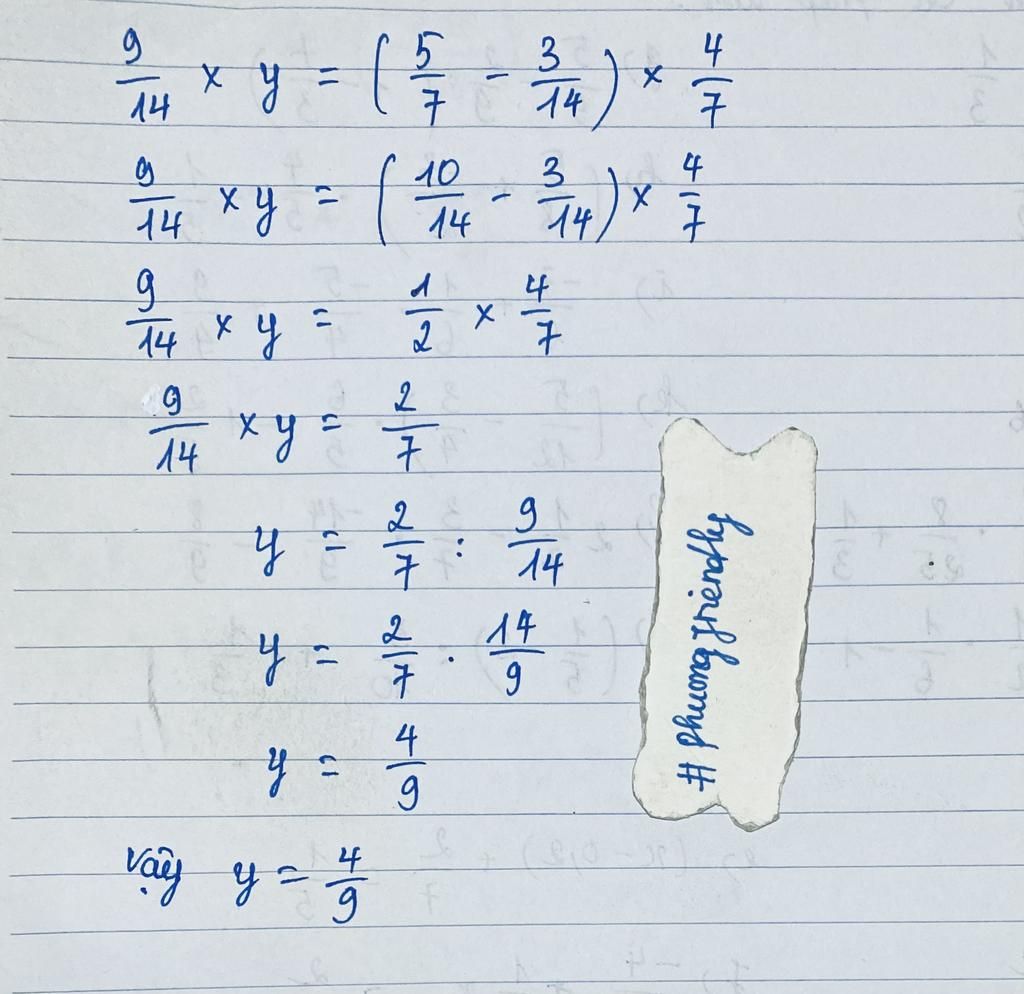 9/14 x y = (5/7 - 3/14) x 4/7
9/14 x y = (10/14 - 3/14) x 4/7
9/14 x y = 1/2 x 4/7
9/14 x y = 2/7
y = 2/7 : 9/14
y = 2/7 . 14/9
y = 4/9
Vậy y = 4/9
# phuongfriendly